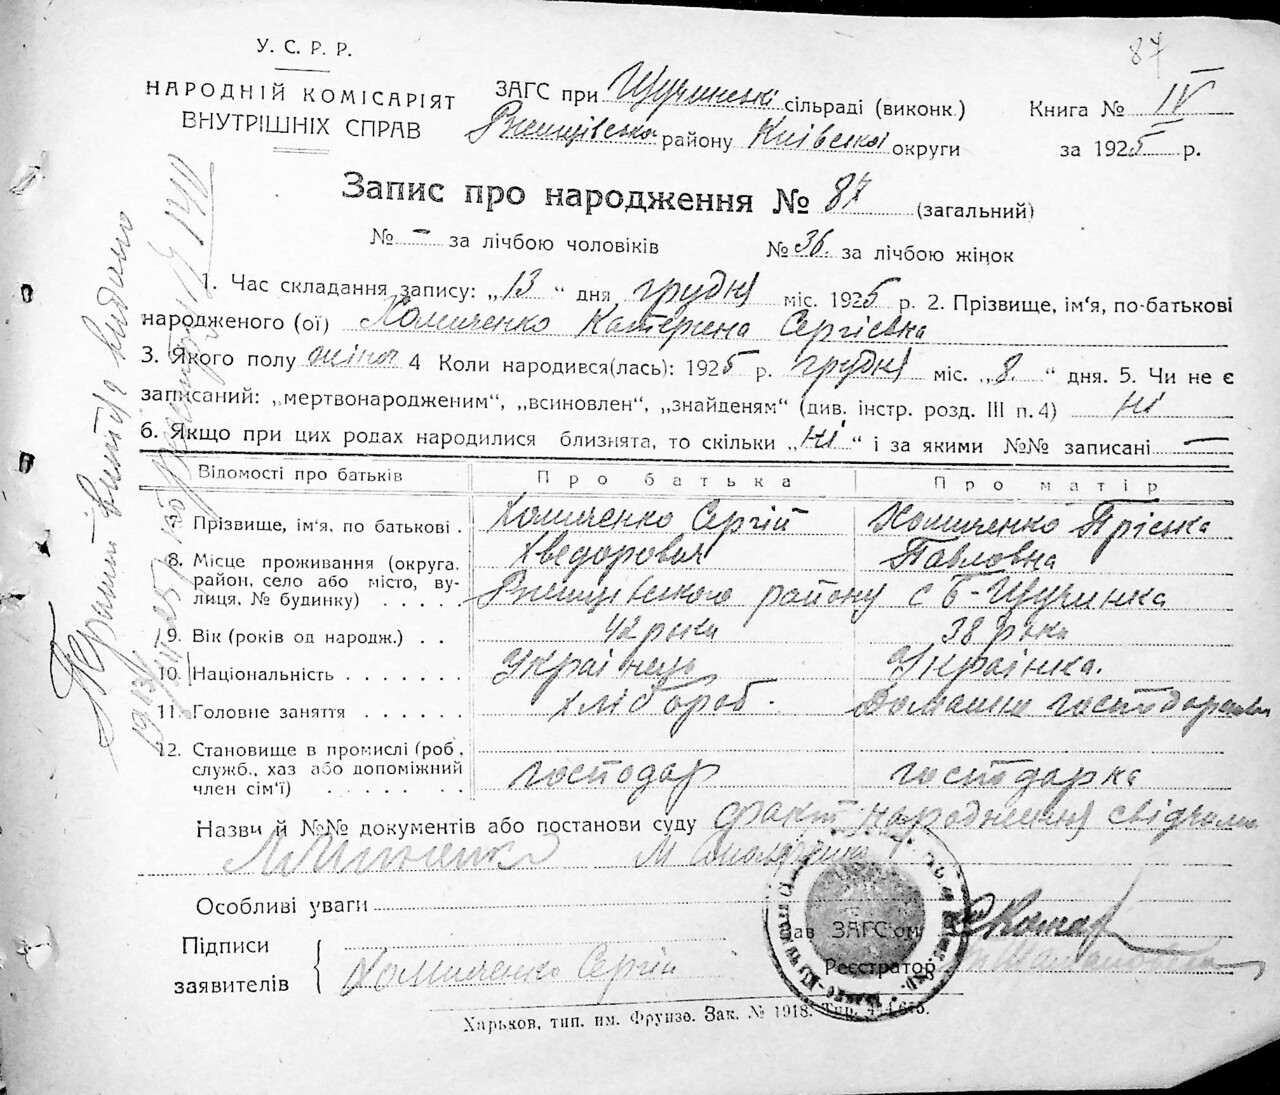 87
У. С. Р. Р.
НАРОДНІЙ КОМІСАРІЯТ
ВНУТРІШНІХ СПРАВ
ЗАГС при Щучинські сільраді (виконк.)
Ржищівська району Київської округи
Книга № IV
за 1925 р.
Запис про народження № 87 (загальний)
№ – за лічбою чоловіків № 36. за лічбою жінок
1. Час складання запису: „13“ дня грудня міс. 1925 р. 2. Прізвище, ім‘я, по-батькові
народженого (ої) Хомиченко Катерина Сергіевна
3. Якого полу жіноч 4 Коли народився(лась): 1925 р. грудня міс. „8.“ дня. 5. Чи не є
записаний: „мертвонародженим“, „всиновлен“, „знайденям“ (див. інстр. розд. III п. 4) Ні
6. Якщо при цих родах народилися близнята, то скільки „Ні“ і за якими №№ записані —
Відомості про батьків Про батька Про матір
Прізвище, ім‘я, по батькові . Хомиченко Сергій Хомиченко Пріська
Хведорович Павловна
8. Місце проживання (округа.
район, село або місто, ву-
лиця, № будинку) . . . . . Ржищівського району с Б-Щучинка
9. Вік (років од народж.) . . 42 рока 38 рока
10. Національність . . . . . . . Українець Українка.
11. Головне заняття . . . . . . хлібороб. Домашня господарства
12. Становище в промислі (роб.,
служб., хаз або допоміжний
член сім‘ї) . . . . . . . господар господарка
Назви й №№ документів або постанови суду факт народження свідчили
Особливі уваги
Підписи
заявителів
Хомиченко Сергій
Зав ЗАГС‘ом
Реєстратор
Харьков, тип. им. Фрунзе. Зак. № 1918. Тир. 474.675.
Первий витяг видано